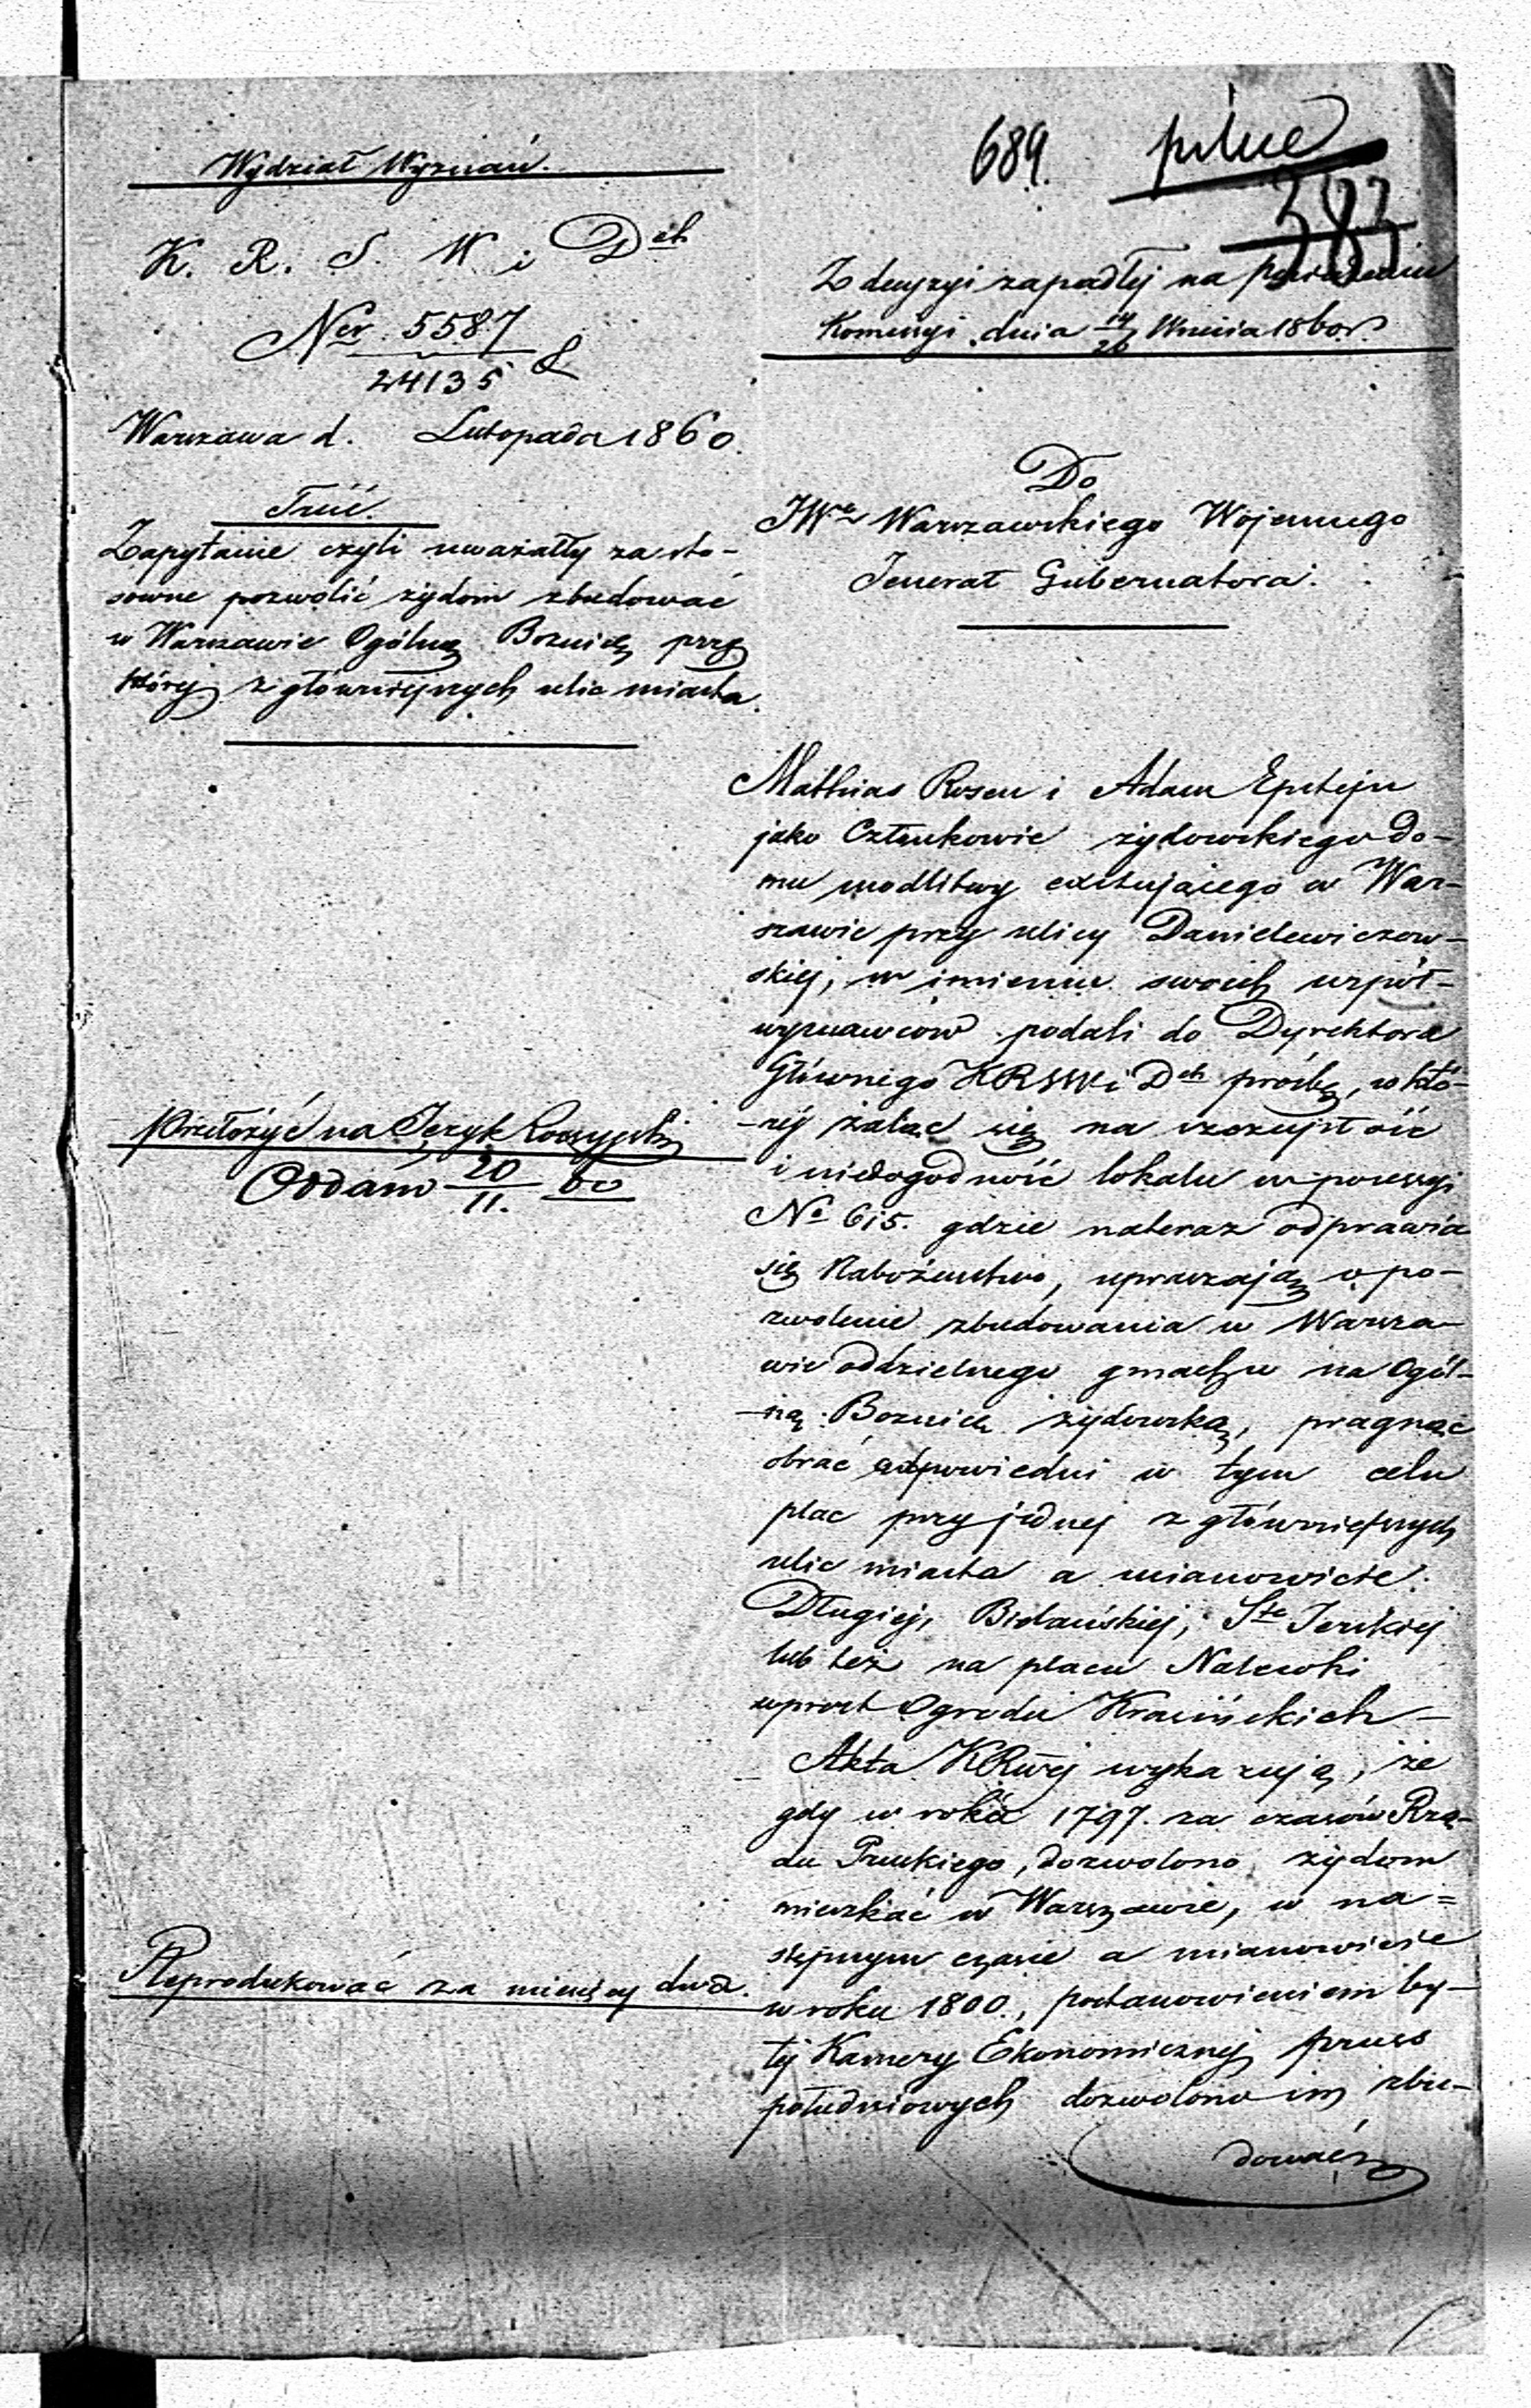 Wydział Wyznań.
K. R. S. W. i Dch
Ner 5587
24135
Warszawa d. Listopada 1860.
Treść.
Zapytanie czyli uważałby za sto-
sowne pozwolić żydom zbudować
w Warszawie Ogólną Bożnicę przy
której z główniejszych ulic miasta.
Przełożyć na Język Rossyjski
Oddano 20/11. 60
Reprodukować za miesięcy dwa.
689. pilne
383
Z decyzyi zapadłej na posiedzeniu
Kommisyi dnia 14/26 Września 1860 r.
Do
JWo Warszawskiego Wojennego
Jenerał Gubernatora.
Mathias Rosen i Adam Epstejn
jako Członkowie żydowskiego do-
mu modlitwy exystującego w War-
szawie przy ulicy Danielewiczow-
skiej, w imieniu swoich współ-
wyznawców podali do Dyrektora
Głównego KRSWi Dch prośbę, w któ-
-rej żaląc się na szczupłość
i niedogodność lokalu w possesyi
No 615. gdzie nateraz odprawia
się Nabożeństwo, upraszają o po-
zwolenie zbudowania w Warsza-
wie oddzielnego gmachu na Ogól-
-ną Bożnicę żydowską, pragnąc
obrać odpowiedni w tym celu
plac przy jednej z główniejszych
ulic miasta a mianowicie:
Długiej, Bielańskiej, Sto Jerskiej
lub też na placu Nalewki
wprost Ogrodu Krasińskich –
Akta KRwej wykazują, że
gdy w roku 1797. za czasów Rzą-
du Pruskiego, dozwolono żydom
mieszkać w Warszawie, w na=
stępnym czasie a mianowicie
w roku 1800., postanowieniem by-
łej Kamery Ekonomicznej prus
południowych dozwolono im zbu-
dować